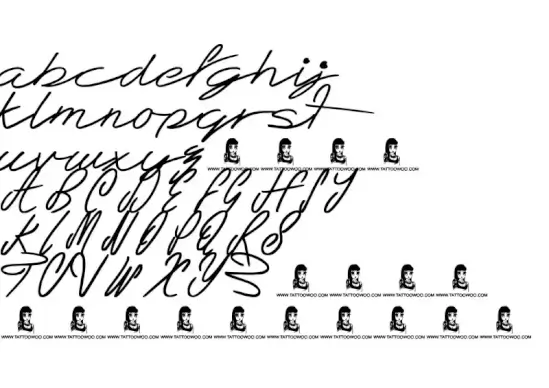 abcdefghij
klmnopqrst
uvwxyz WWW.TATTOOWOO.COM WWW.TATTOOWOO.COM WWW.TATTOOWOO.COM WWW.TATTOOWOO.COM
A B C D E F G H I J
K L M N O P Q R S
T U V W X Y Z WWW.TATTOOWOO.COM WWW.TATTOOWOO.COM WWW.TATTOOWOO.COM WWW.TATTOOWOO.COM
WWW.TATTOOWOO.COM WWW.TATTOOWOO.COM WWW.TATTOOWOO.COM WWW.TATTOOWOO.COM WWW.TATTOOWOO.COM WWW.TATTOOWOO.COM WWW.TATTOOWOO.COM WWW.TATTOOWOO.COM WWW.TATTOOWOO.COM WWW.TATTOOWOO.COM